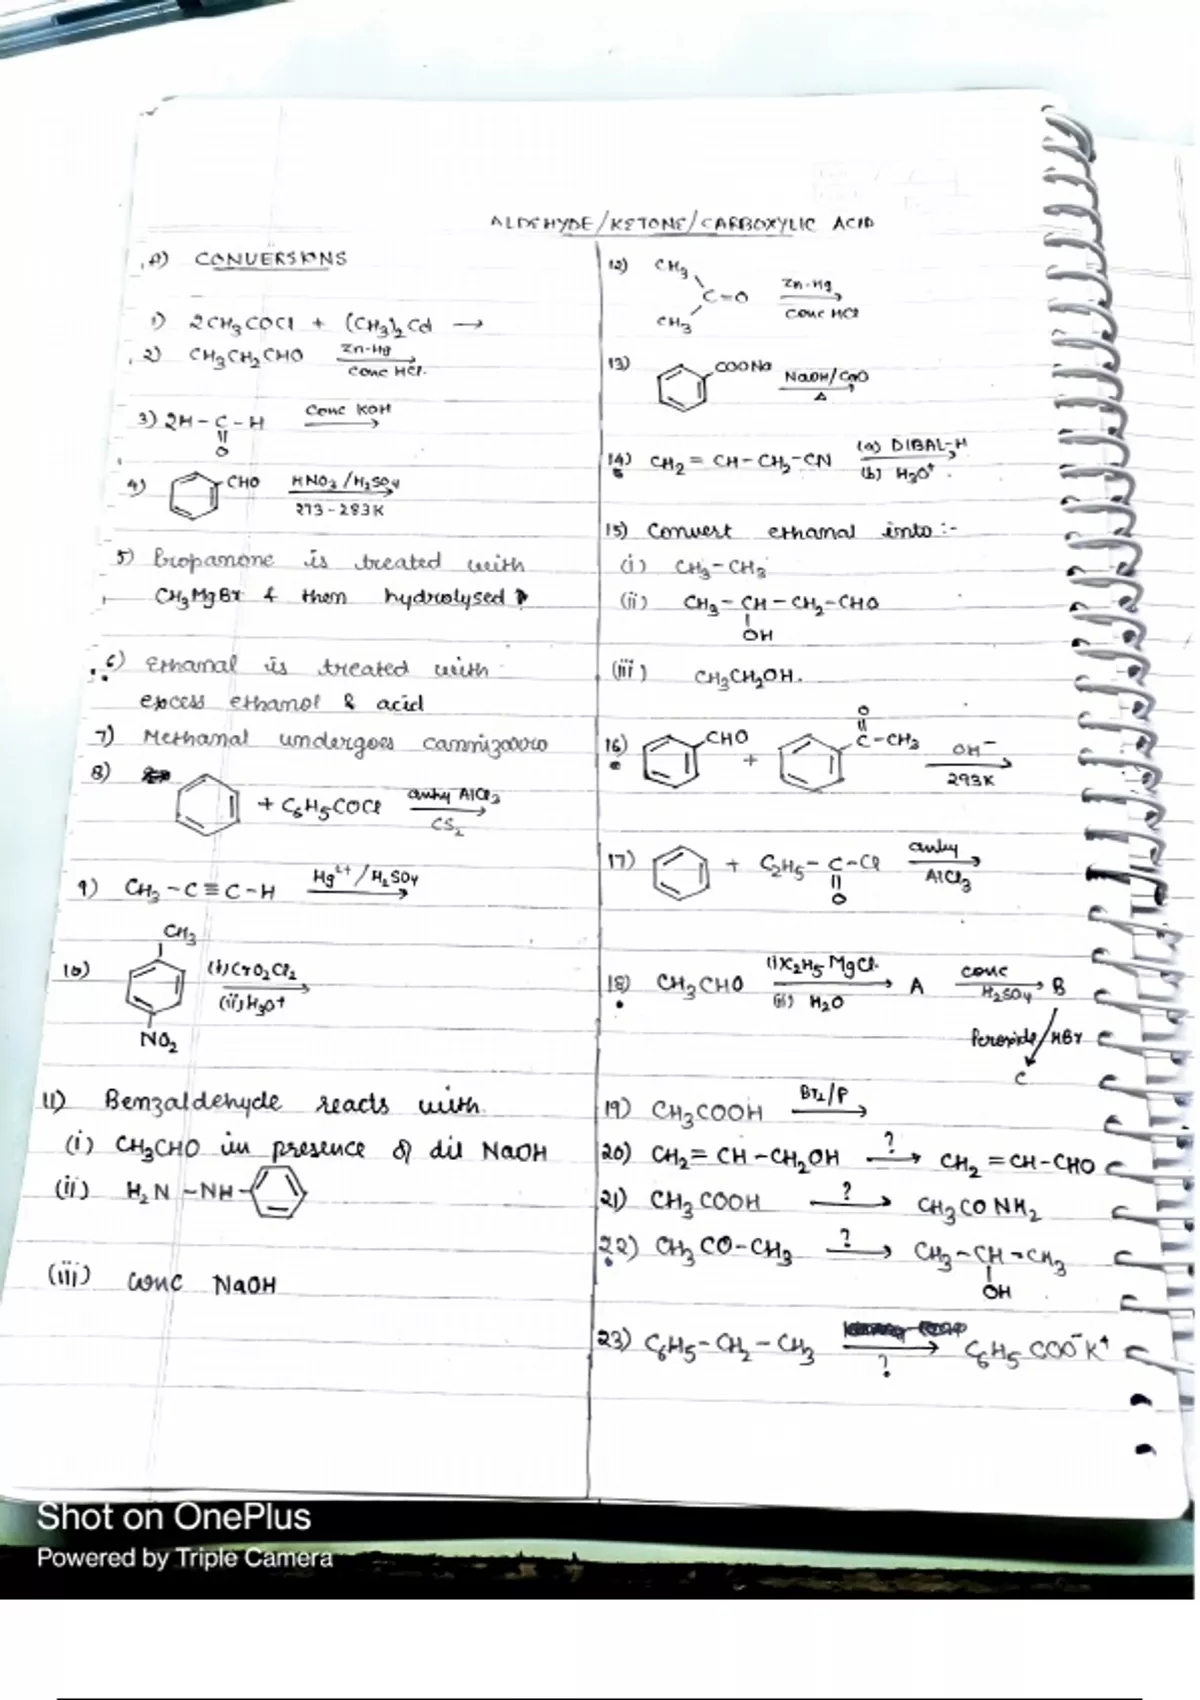 ALDEHYDE/KETONE/CARBOXYLIC ACID
A) CONVERSIONS
1) 2CH3COCl + (CH3)2Cd →
2) CH3CH2CHO Zn-Hg → Conc HCl.
3) 2H-C-H Conc KOH →
O
4) CHO HNO3/H2SO4 → 273-283K
5) Propanone is treated with
CH3MgBr & then hydrolysed
6) Ethanal is treated with
excess ethanol & acid
7) Methanal undergoes cannizzaro
8) + C6H5COCl anhy AlCl3 → CS2
9) CH3-C≡C-H Hg2+/H2SO4 →
CH3
10) (i) CrO2Cl2 → (ii) H3O+
NO2
11) Benzaldehyde reacts with
(i) CH3CHO in presence of dil NaOH
(ii) H2N-NH-
(iii) conc NaOH
12) CH3
C=O Zn-Hg → Conc HCl
CH3
13) COONa NaOH/CaO → Δ
14) CH2=CH-CH2-CN (a) DIBAL-H → (b) H3O+.
15) Convert ethanal into:-
(i) CH3-CH3
(ii) CH3-CH-CH2-CHO
OH
(iii) CH3CH2OH.
O
16) CHO + C-CH3 OH- → 293K
17) + C2H5-C-Cl anhy → AlCl3
O
18) CH3CHO (i) C2H5MgCl. → (ii) H2O A conc → H2SO4 B
Peroxide/HBr
C
19) CH3COOH Br2/P →
20) CH2=CH-CH2OH ? → CH2=CH-CHO
21) CH3COOH ? → CH3CONH2
22) CH3CO-CH3 ? → CH3-CH-CH3
OH
23) C6H5-CH2-CH3 → ? C6H5COO-K+
Shot on OnePlus
Powered by Triple Camera